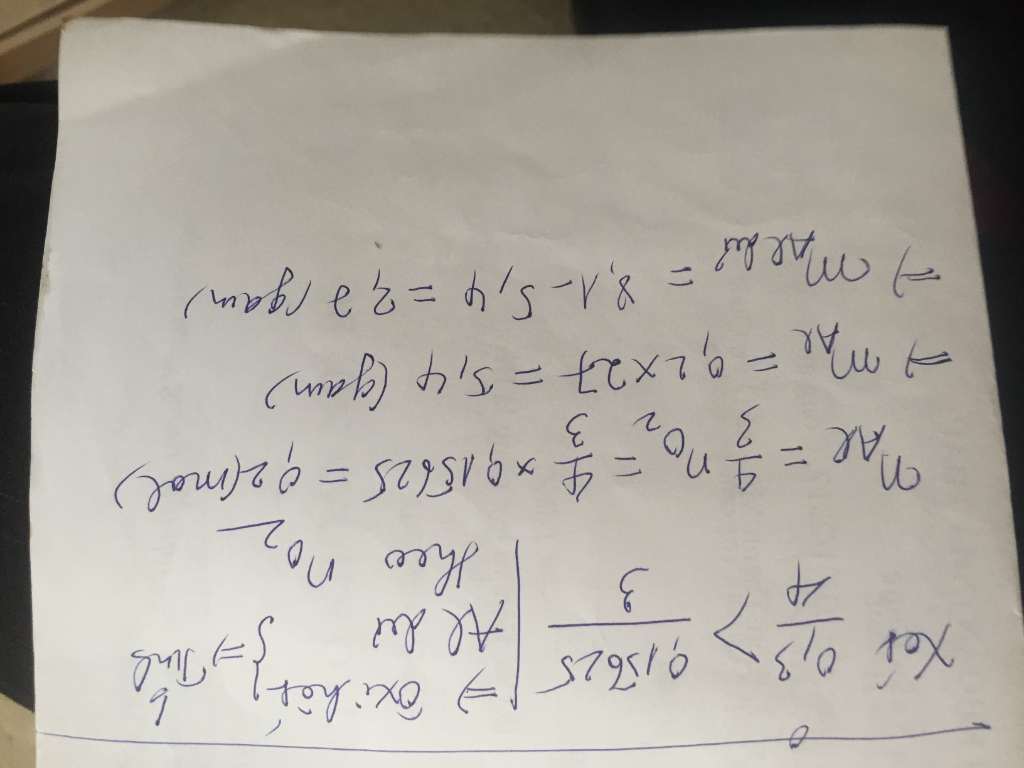 Xét 0,3/4 > 0,15625/3 | => Oxi hết } => Tính
Al dư
theo nO2
nAl = 4/3 nO2 = 4/3 x 0,15625 = 0,2 (mol)
=> mAl = 0,2 x 27 = 5,4 (gam)
=> mAl dư = 8,1 - 5,4 = 2,7 (gam)